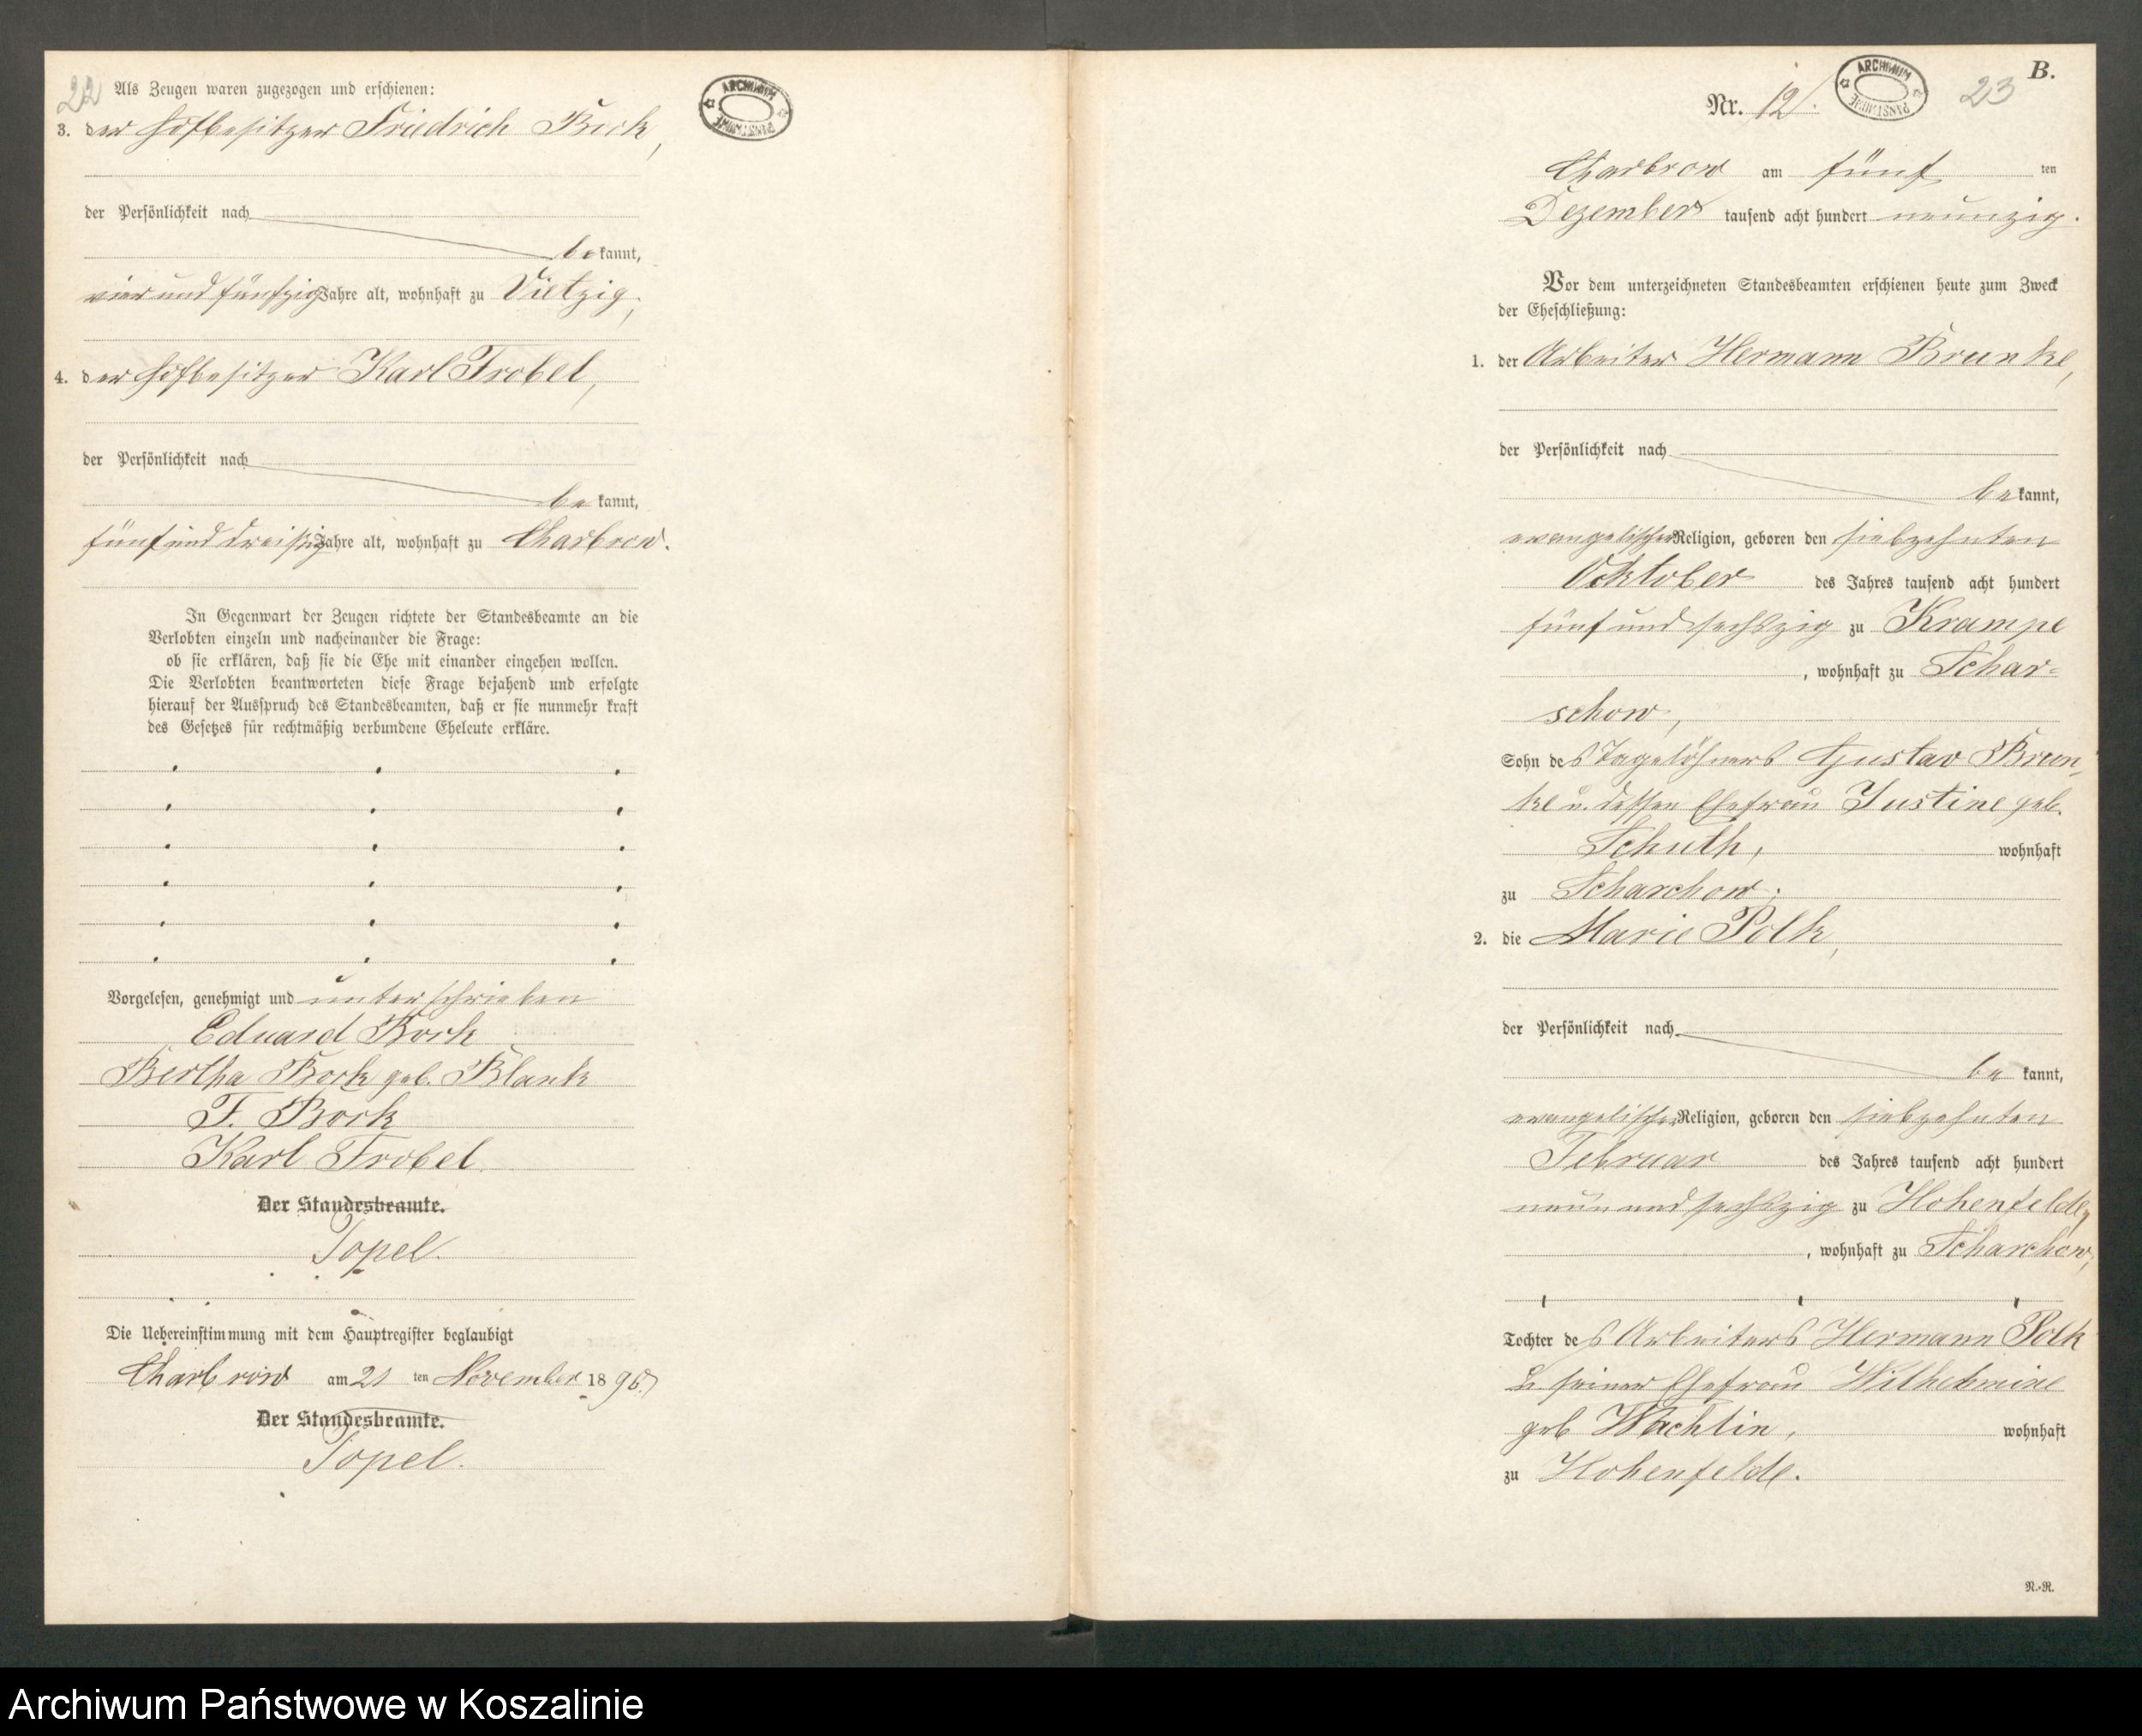 22
Als Zeugen waren zugezogen und erschienen:
3. der Hofbesitzer Friedrich Bork,
der Persönlichkeit nach
bekannt,
vier und fünfzig Jahre alt, wohnhaft zu Vietzig,
4. der Hofbesitzer Karl Trobel,
der Persönlichkeit nach
bekannt,
fünf und dreißig Jahre alt, wohnhaft zu Charbrow.
In Gegenwart der Zeugen richtete der Standesbeamte an die
Verlobten einzeln und nacheinander die Frage:
ob sie erklären, daß sie die Ehe mit einander eingehen wollen.
Die Verlobten beantworteten diese Frage bejahend und erfolgte
hierauf der Ausspruch des Standesbeamten, daß er sie nunmehr kraft
des Gesetzes für rechtmäßig verbundene Eheleute erkläre.
Vorgelesen, genehmigt und unterschrieben
Eduard Bork
Bertha Bork geb. Blank
F. Bork
Karl Trobel
Der Standesbeamte.
Topel.
Die Uebereinstimmung mit dem Hauptregister beglaubigt
Charbrow am 21 ten November 1890
Der Standesbeamte.
Topel.
ARCHIWUM PAŃSTWOWE
B.
Nr. 12.
ARCHIWUM PAŃSTWOWE
23
Charbrow am fünf ten
Dezember tausend acht hundert neunzig.
Vor dem unterzeichneten Standesbeamten erschienen heute zum Zweck
der Eheschließung:
1. der Arbeiter Hermann Brunke,
der Persönlichkeit nach
bekannt,
evangelischer Religion, geboren den siebzehnten
Oktober des Jahres tausend acht hundert
fünf und sechszig zu Krampe
, wohnhaft zu Schar-
schow,
Sohn des Tagelöhners Gustav Brun-
ke u. dessen Ehefrau Justine geb.
Schuth, wohnhaft
zu Scharchow.
2. die Marie Polk,
der Persönlichkeit nach
bekannt,
evangelischer Religion, geboren den siebzehnten
Februar des Jahres tausend acht hundert
neun und sechszig zu Hohenfelde,
, wohnhaft zu Scharchow,
Tochter des Arbeiters Hermann Polk
u. seiner Ehefrau Wilhelmine
geb Wachlin, wohnhaft
zu Hohenfelde.
N.-R.
Archiwum Państwowe w Koszalinie